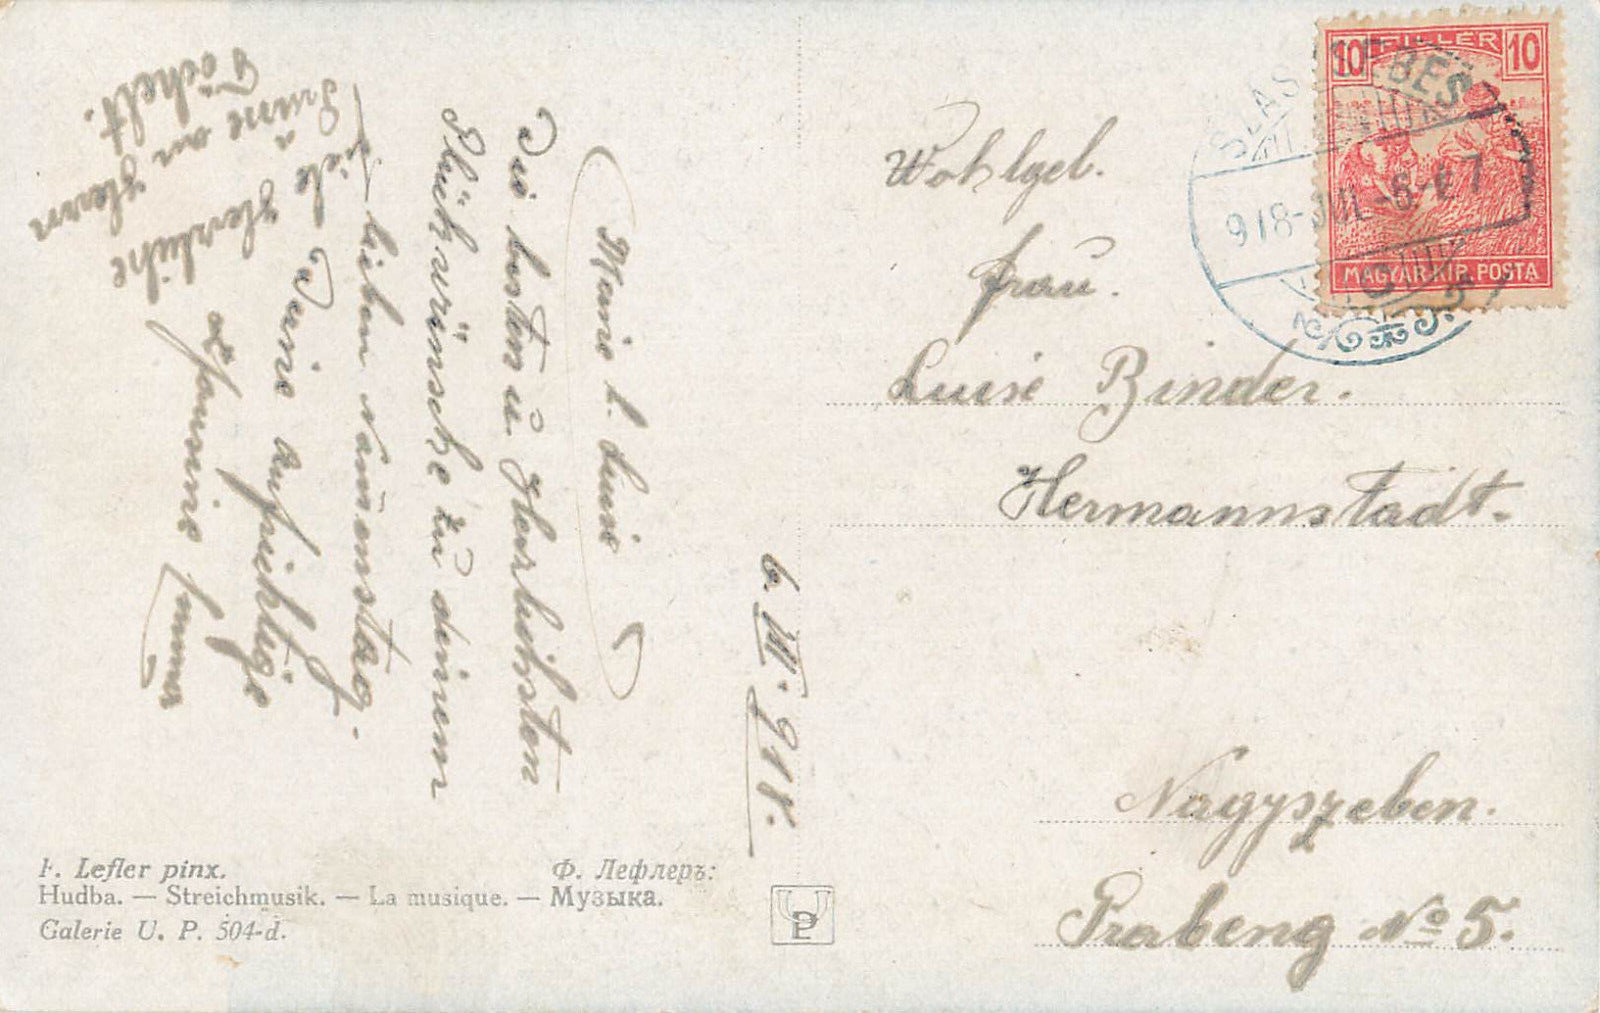 Meine l. Luise
Die besten u. Herzlichsten
Glückwünsche zu deinem
lieben Namenstag.
Deine aufrichtige
Emma
viele Herzliche
Grüsse an Herrn
6. III. 918.
Wohlgeb.
Frau.
Luise Binder.
Hermannstadt.
Nagyszeben.
Prabeng No 5.
10 FILLÉR 10
MAGYAR KIR. POSTA
F. Lefler pinx. Ф. Лефлеръ:
Hudba. — Streichmusik. — La musique. — Музыка.
Galerie U. P. 504-d.
UP